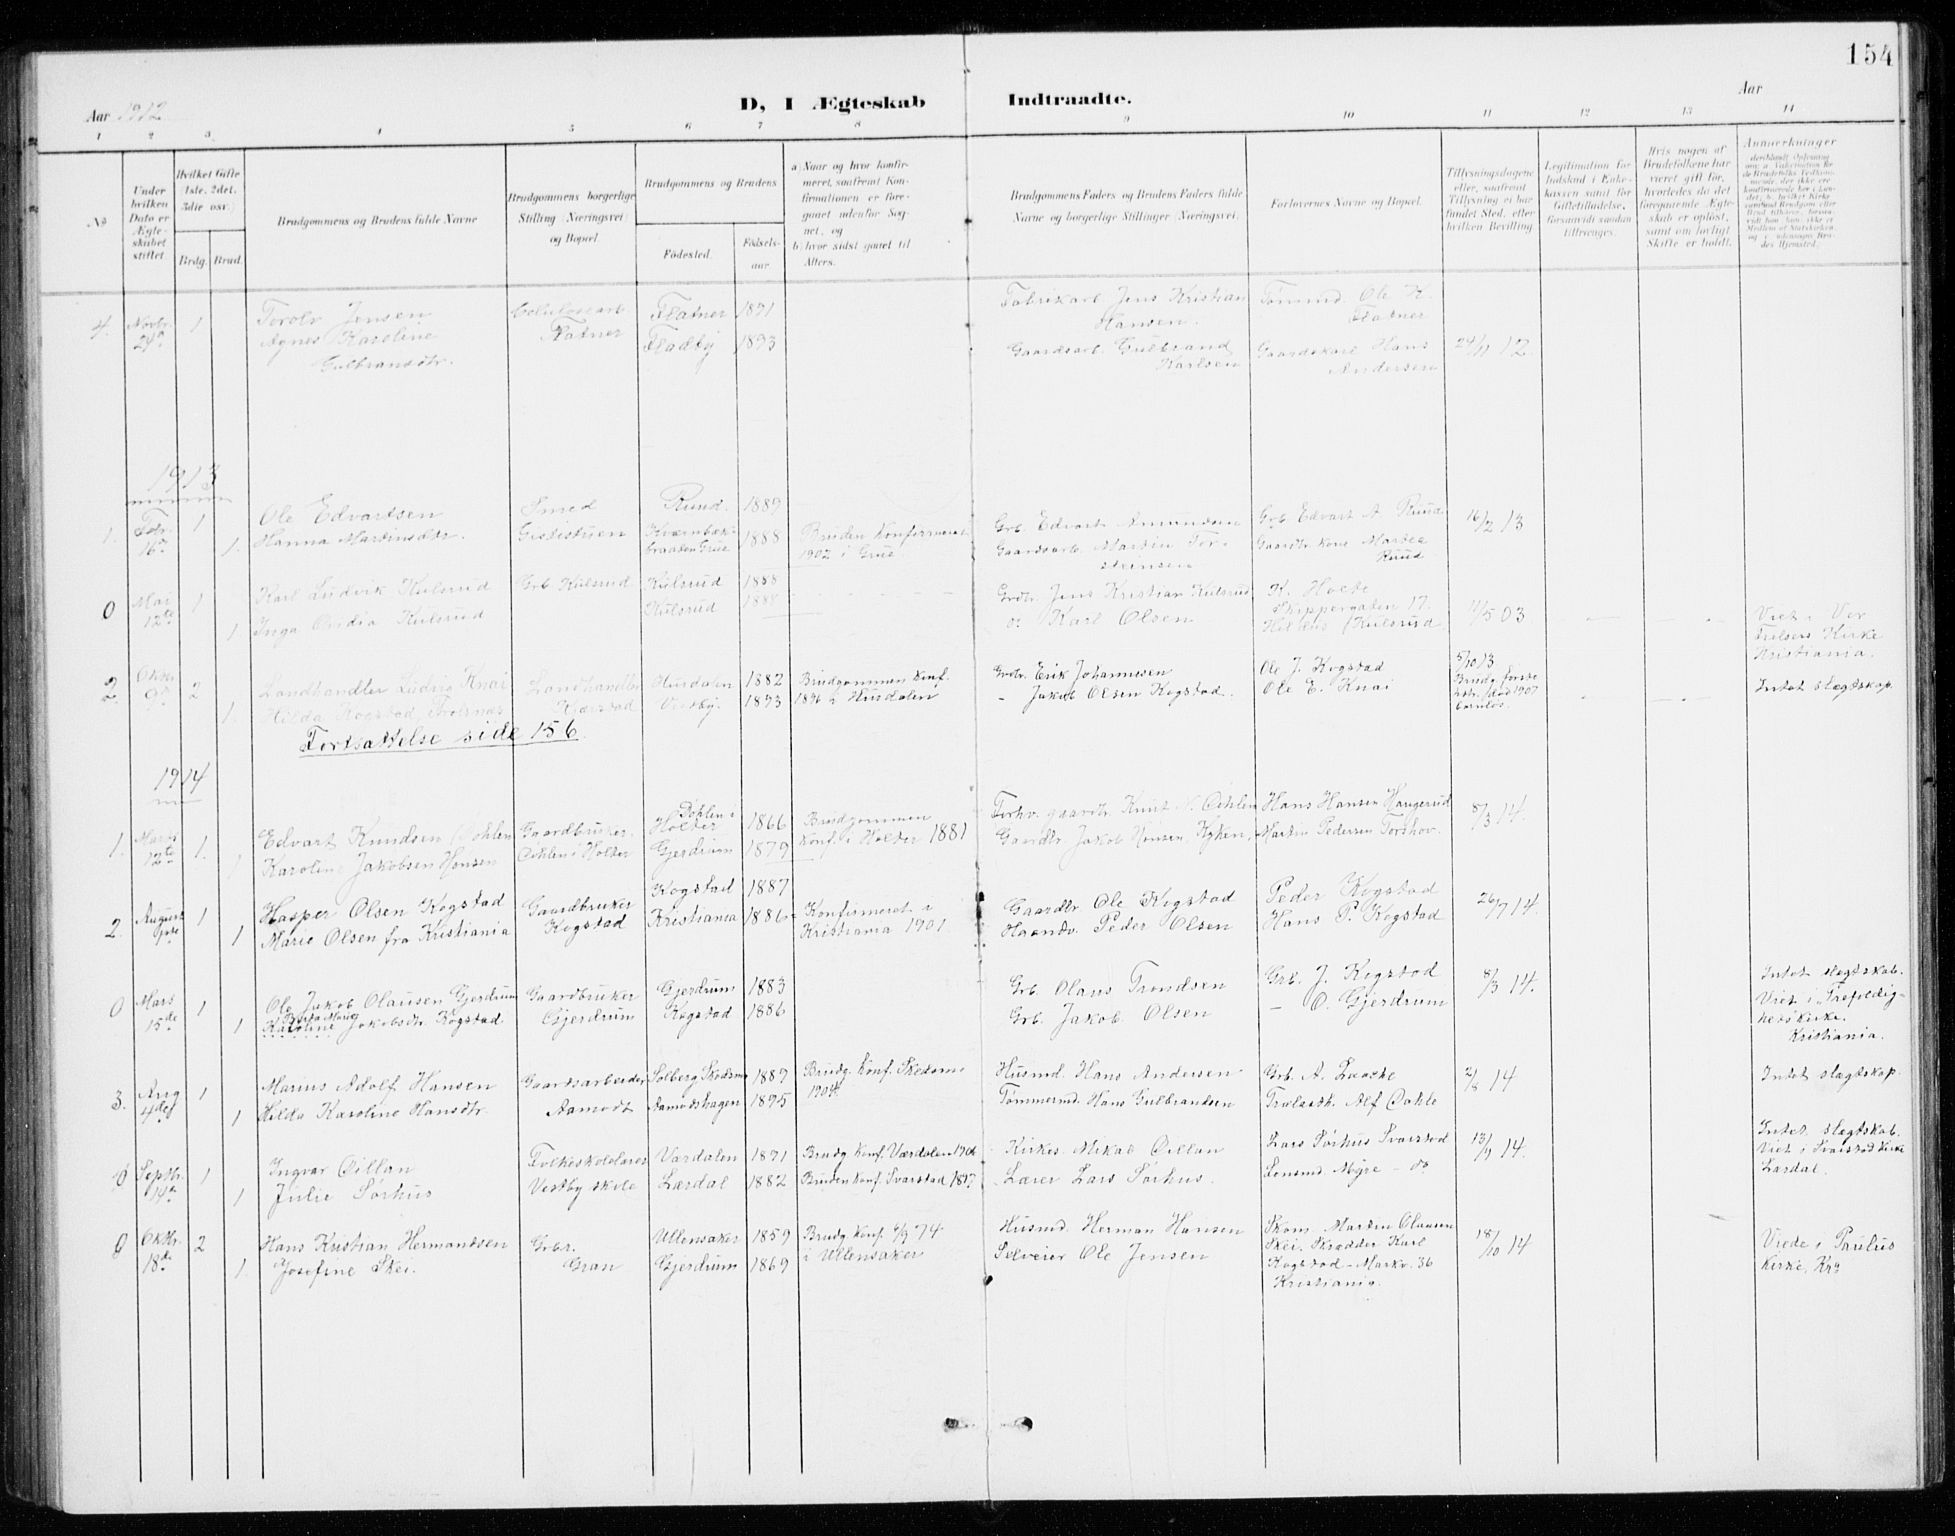 154
Aar 1912
D, I Ægteskab Indtraadte.
Aar
1 2 3 4 5 6 7 8 9 10 11 12 13 14
No
Under hvilken Dato er Ægteskabet stiftet.
Hvilket Gifte (1ste, 2det, 3die osv.)
Brdg. Brud.
Brudgommens og Brudens fulde Navne
Brudgommens borgerlige Stilling (Næringsvei) og Bopæl.
Brudgommens og Brudens
Fødested. Fødselsaar.
a) Naar og hvor konfirmeret, saafremt Konfirmationen er foregaaet udenfor Sognet, og
b) hvor sidst gaaet til Alters.
Brudgommens Faders og Brudens Faders fulde Navne og borgerlige Stillinger (Næringsvei).
Forlovernes Navne og Bopæl.
Tillysningsdagene eller, saafremt Tillysning ei har fundet Sted, efter hvilken Bevilling
Legitimation for Indskud i Enkekassen samt for Giftetilladelse, forsaavidt saadan tiltrænges.
Hvis nogen af Brudefolkene har været gift før, hvorledes da det foregaaende Ægteskab er opløst, samt om lovligt Skifte er holdt.
Anmærkninger
4. Novbr. 24de 1
Torolv Jensen
Agnes Karoline
Gulbrandsdtr.
Celulosearb.
Flatner
Flatner 1891
Fladby 1893
Fabrikarb. Jens Kristian
Hansen.
Gaardsarb. Gulbrand
Karlsen
Tømmd. Ole K.
Flatner
Gaardskarl Hans
Andersen
24/11 12.
1913
1. Febr. 16de 1 1.
Ole Edvartsen
Hanna Martinsdtr.
Smed
Gististuen
Ruud. 1889
Kværnbæk-
braaten Grue 1888
Bruden Konfirmeret
1902 i Grue
Grb. Edvart Amundsen
Gaardsarb. Martin Tor-
steinsen
Grb. Edvart A. Ruud
Gaardbr. kone Martea
Ruud
16/2 13
0 Mai 12te 1 1
Karl Ludvik Kulsrud
Inga Ovidia Kulsrud
Grb. Kulsrud
Kulsrud 1888
Kulsrud 1888
Grdbr. Jens Kristian Kulsrud
do Karl Olsen
K. Holte
Skippergaten 17.
Kulsrud
11/5 03
Viet i Vor
Frelsers Kirke
Kristiania.
2 Oktbr. 9de 2 1.
Landhandler Ludvig Knai
Hilda Kogstad
Landhandler
Kjærstad
Hurdalen 1882
Vestby. 1893
Brudgommen Konf.
1896 i Hurdalen
Grdbr. Erik Johannessen
– Jakob Olsen Kogstad.
Ole J. Kogstad
Ole E. Knai
5/10 13
Brudg. første
hstr. død 1907
barnløs.
Intet slægtskap.
Fortsættelse side 156
1914
1. Mars 12te 1. 1
Edvart Knudsen Døhlen
Karoline Jakobsen Hønsen
Gaardbruker.
Døhlen i Holter
Døhlen i
Holter 1866
Gjerdrum 1879
Brudgommen
Konf. i Holter 1881
Forhv. gaardbr. Knut N. Døhlen
Gaardbr. Jakob Hønsen, Kyken,
Hans Hansen Haugerud
Martin Pedersen Torshov.
8/3 14.
2. August 1ste 1 1
Hasper Olsen Kogstad
Marie Olsen fra Kristiania
Gaardbruker
Kogstad
Kogstad 1887
Kristiania 1886
Konfirmeret i
Kristiania 1901.
Gaardbr. Ole Kogstad
Haandv. Peder Olsen
Peder Kogstad
Hans P. Kogstad
26/7 14.
0 Mars 15de 1 1
Ole Jakob Olausen Gjerdrum
Berta Marie
Karoline Jakobsdtr. Kogstad.
Gaardbruker
Gjerdrum
Gjerdrum 1883
Kogstad 1886
Grb. Olaus Trondsen
Grb. Jakob Olsen
Grb. J. Kogstad
– O. Gjerdrum
8/3 14.
Intet slægtskab.
Viet i Trefoldig-
hetskirke.
Kristiania.
3. Aug 4de 1 1
Marius Adolf Hansen
Hilda Karoline Hansdtr.
Gaardsarbeider
Aamodt
Solberg Skedsmo 1889
Aamodshagen 1895
Brudg. Konf. Skedsmo
1904
Husmd. Hans Andersen
Tømmermd. Hans Gulbrandsen
Grb. A. Laache
Trælasth. Alf Dahle
2/8 14
Intet slægtskap.
0 Septbr. 14de 1 1
Ingvar Oillan
Julie Sørhus
Folkeskolelærer
Vestby skole
Værdalen 1891
Lardal 1882
Brudg Konf. Værdalen 1906
Bruden konf. Svarstad 1897
Kirkes. Mikal Oillan
Lærer Lars Sørhus.
Lars Sørhus Svarstad
Lensmd. Myre – do
13/9 14.
Intet slægtskab.
Viet i Svarstad kirke
Lardal.
0 Oktbr. 18de 2 1
Hans Kristian Hermandsen
Josefine Skei.
Grbr.
Gran
Ullensaker 1859
Gjerdrum 1869
Brudg Konf. 6/9 74
i Ullensaker
Husmd. Herman Hansen
Selveier Ole Jensen
Skom. Martin Olausen
Skei. Skrædder Karl
Kogstad – Markv. 36
Kristiania.
18/10 14
Viede i Paulus
kirke, Kra